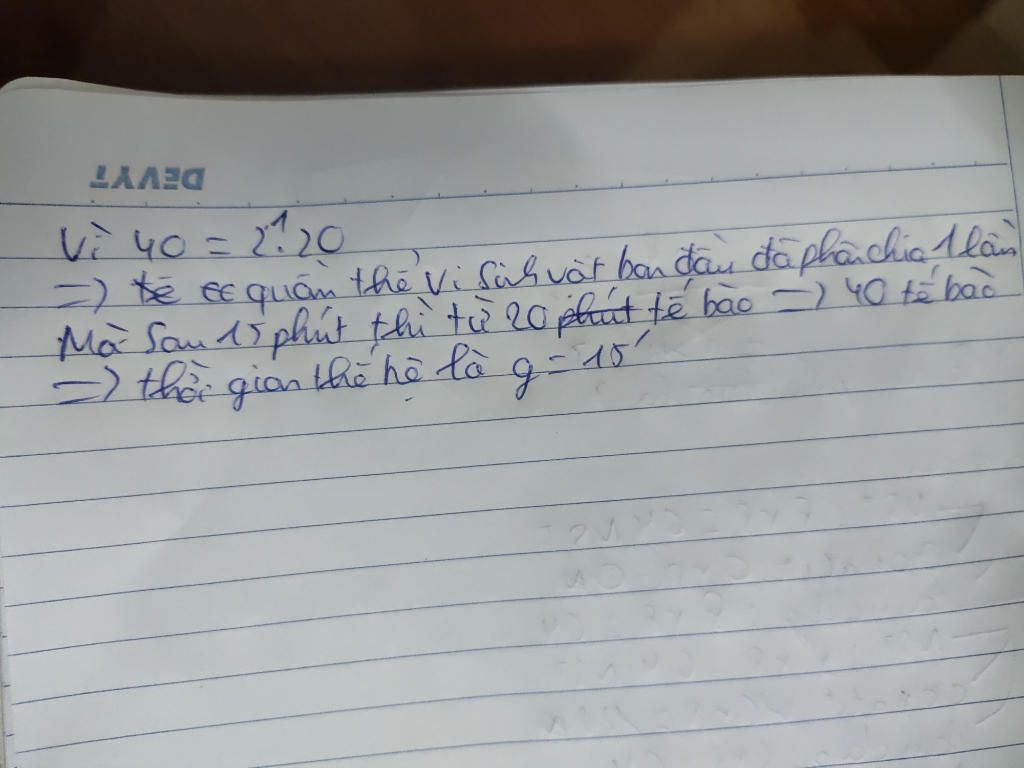 DEVYT
Vì 40 = 2¹.20
=> quần thể vi sinh vật ban đầu đã phân chia 1 lần
Mà sau 15 phút thì từ 20 phút tế bào => 40 tế bào
=> thời gian thế hệ là g = 15'